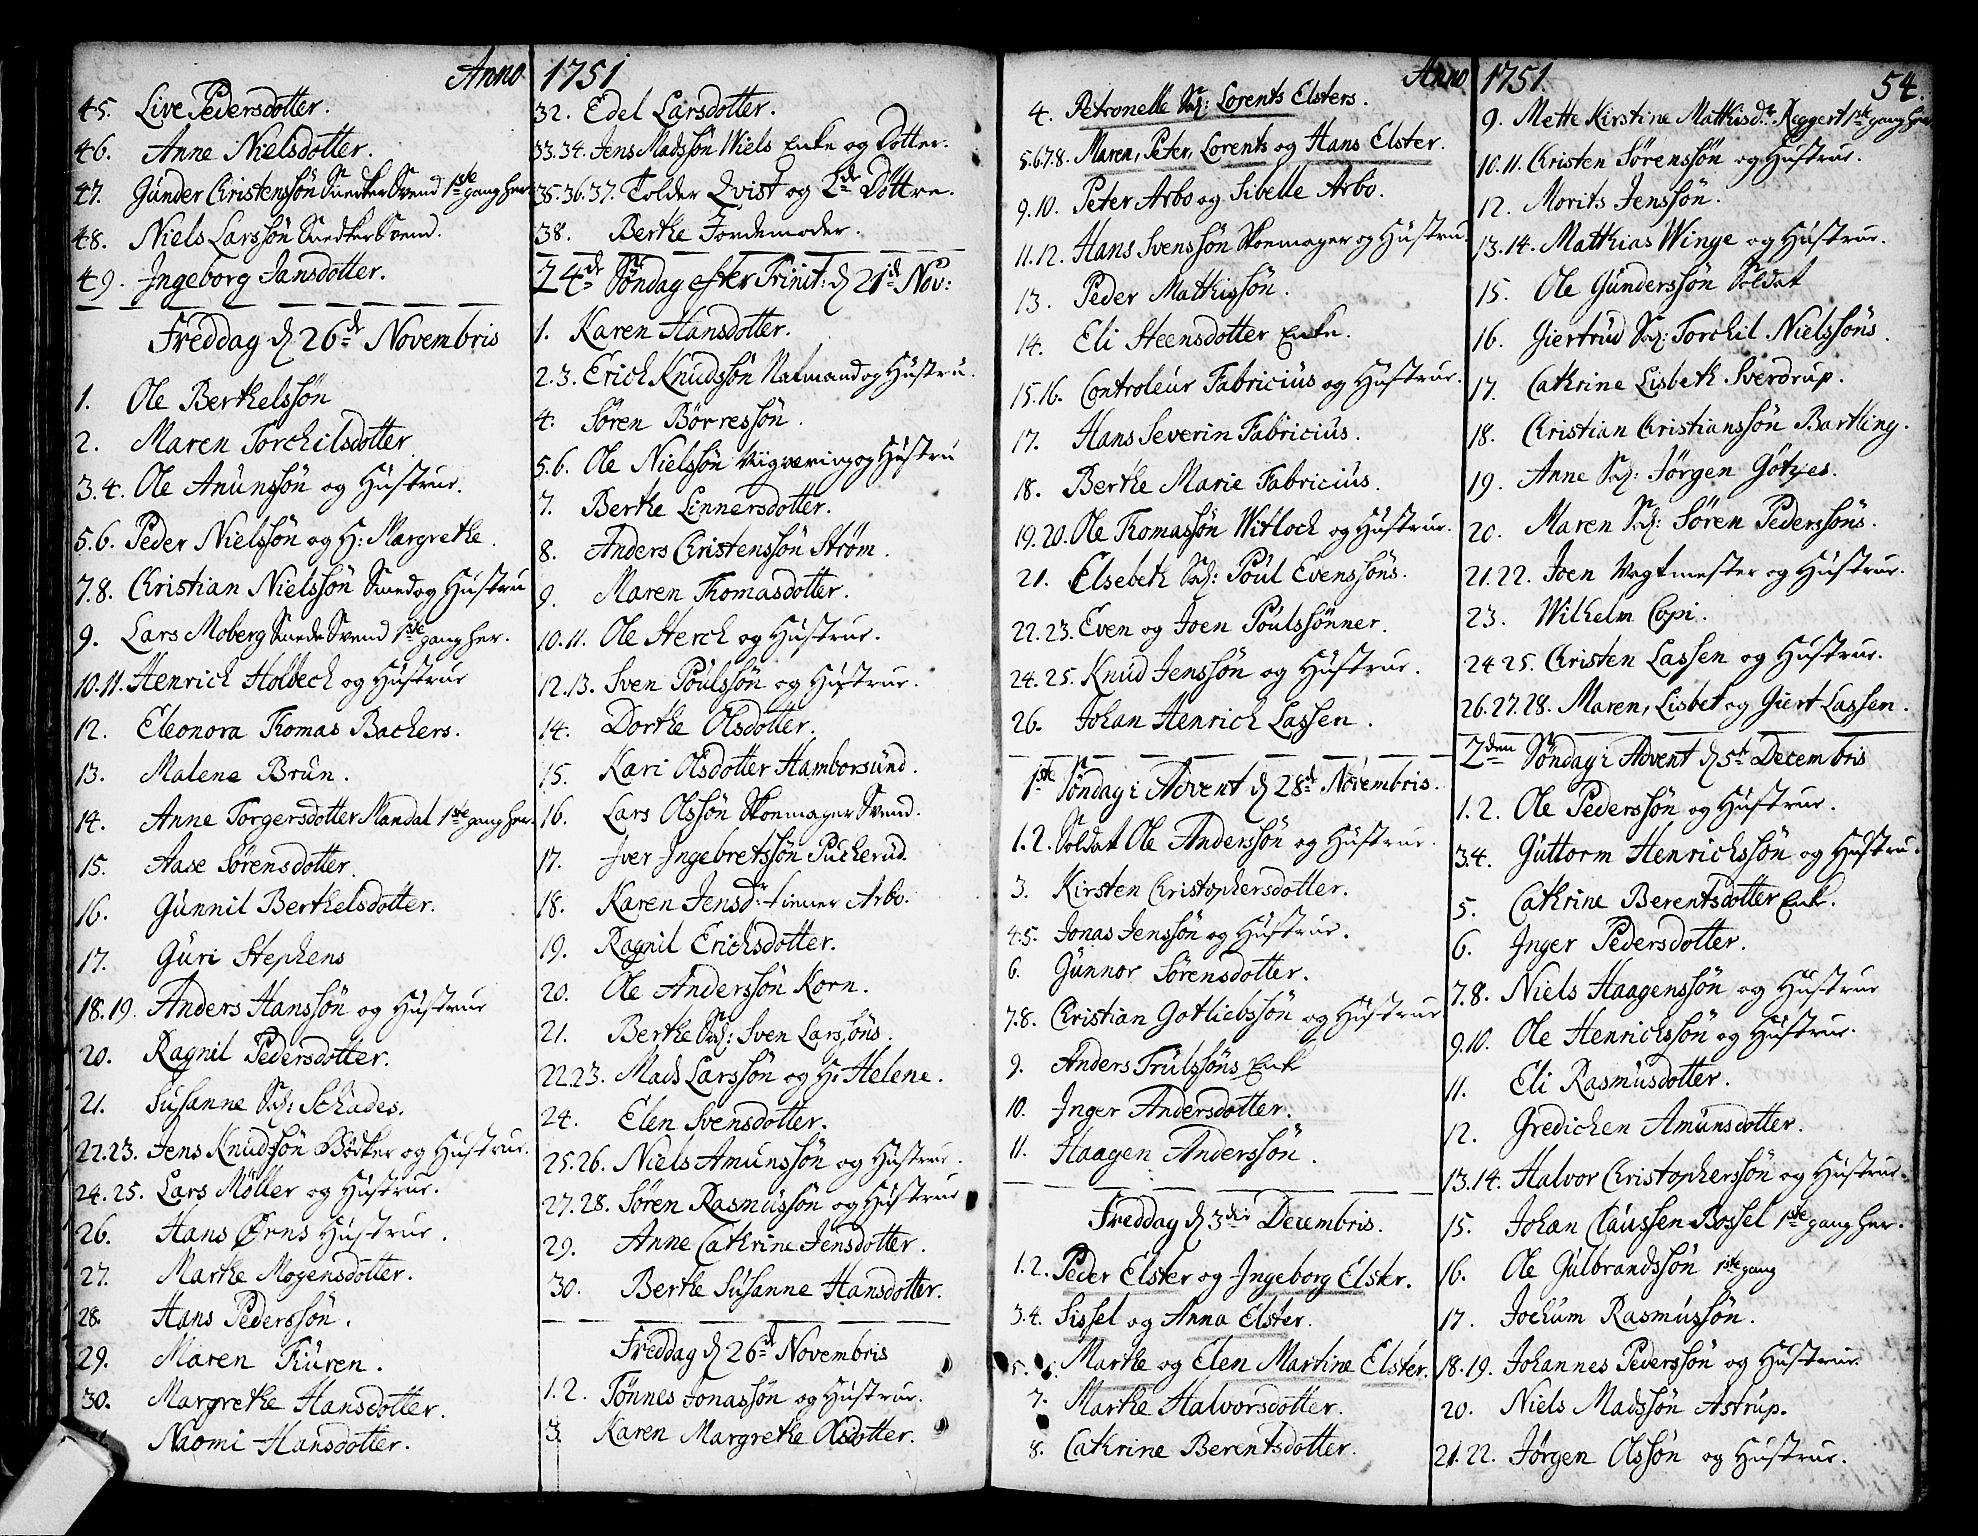 Anno 1751
45. Live Pedersdotter.
46. Anne Nielsdotter.
47. Gunder Christenssön Snedker Svend 1ste gang her
48. Niels Larssön Snedker Svend.
49. Ingeborg Jansdotter.
Freddag d. 26de Novembris
1. Ole Berthelssön
2. Maren Torchilsdotter
3.4. Ole Anunssön og Hustrue.
5.6. Peder Nielssön og H: Margrethe.
7.8. Christian Nielssön Smed og Hustru
9. Lars Moberg Smede Svend 1ste gang her.
10.11. Henrich Holbech og Hustrue
12. Eleonora Thomas Bachers.
13. Malene Brun.
14. Anne Torgersdotter Mandal 1ste gang her.
15. Aase Sörensdotter.
16. Gunnil Berthelsdotter.
17. Guri Stephens
18.19. Anders Hanssön og Hustrue
20. Ragnil Pedersdotter.
21. Susanne Sal: Schades.
22.23. Jens Knudssön Bödker og Hustrue.
24.25. Lars Möller og Hustrue.
26. Hans Örns Hustrue.
27. Marthe Mogensdotter.
28. Hans Pederssön.
29. Maren Thuren.
30. Margrethe Hansdotter.
Naomi Hansdotter.
32. Edel Larsdotter.
33.34. Jens Madssön Niels Enke og Dotter.
35.36.37. Tolder Qvist og 2de Döttre.
38. Berthe Jordemoder.
24de Söndag efter Trinit: d. 21de Nov:
1. Karen Hansdotter.
2.3. Erich Knudssön Natmand og Hustru.
4. Sören Börressön.
5.6. Ole Nielssön Viigværing og Hustru
7. Berthe Linnersdotter.
8. Anders Christenssön Ström.
9. Maren Thomasdotter.
10.11. Ole Sterch og Hustrue.
12.13. Sven Poulssön og Hustrue.
14. Dorthe Olsdotter.
15. Kari Olsdotter Hamborsund.
16. Lars Olssön Skoemager Svend.
17. Iver Ingebretssön Pucherud.
18. Karen Jensdr: tiener Arbo.
19. Ragnil Erichsdotter.
20. Ole Anderssön Korn.
21. Berthe Sal: Sven Larssöns.
22.23. Mads Larssön og H: Helene.
24. Elen Svensdotter.
25.26. Niels Amunssön og Hustrue.
27.28. Sören Rasmussön og Hustrue
29. Anne Cathrine Jensdotter.
30. Berthe Susanne Hansdotter.
Freddag d. 26de Novembris
1.2. Tönnes Jonassön og Hustrue.
3. Karen Margrethe Olsdotter.
Anno 1751. 54.
4. Petronelle Sal: Lorents Elsters.
5.6.7.8. Maren, Peter, Lorents og Hans Elster.
9.10. Peter Arbo og Sibelle Arbo.
11.12. Hans Svenssön Skoemager og Hustru.
13. Peder Mathissön.
14. Eli Steensdotter Enke.
15.16. Controleur Fabricius og Hustrue.
17. Hans Severin Fabricius.
18. Berthe Marie Fabricius.
19.20. Ole Thomassön Witloch og Hustrue.
21. Elsebeth Sal: Poul Evenssöns.
22.23. Even og Joen Poulssönner.
24.25. Knud Jenssön og Hustrue.
26. Johan Henrich Lassen.
1ste Söndag i Advent d. 28de Novembris.
1.2. Soldat Ole Anderssön og Hustrue.
3. Kirsten Christophersdotter.
4.5. Jonas Jenssön og Hustrue.
6. Gunnor Sörensdotter.
7.8. Christian Gotliebssön og Hustrue
9. Anders Trulssöns Enk
10. Inger Andersdotter.
11. Haagen Anderssön.
Freddag d. 3die Decembris.
1.2. Peder Elster og Ingeborg Elster.
3.4. Sissel og Anna Elster.
5. 6. Marthe og Elen Martine Elster.
7. Marthe Halvorsdotter.
8. Cathrine Berentsdotter.
9. Mette Kirstine Mathisdr: Riggert 1ste gang her
10.11. Christen Sörenssön og Hustrue.
12. Morits Jenssön.
13.14. Mathias Winge og Hustrue.
15. Ole Gunderssön Soldat
16. Giertrud Sal: Torchil Nielssöns.
17. Cathrine Lisbeth Sverdrup.
18. Christian Christianssön Bartling.
19. Anne Sal: Jörgen Götzes.
20. Maren Sal: Sören Pederssöns.
21.22. Joen Vagtmester og Hustrue.
23. Wilhelm Copi.
24.25. Christen Lassen og Hustrue.
26.27.28. Maren, Lisbet og Giert Lassen.
2den Söndag i Advent d. 5te Decembris
1.2. Ole Pederssön og Hustrue.
3.4. Guttorm Henrichssön og Hustru.
5. Cathrine Berentsdotter Enk.
6. Inger Pedersdotter.
7.8. Niels Haagenssön og Hustrue
9.10. Ole Henrichssön og Hustrue.
11. Eli Rasmusdotter.
12. Gredichen Amunsdotter.
13.14. Halvor Christopherssön og Hustrue.
15. Johan Claussen Bossel 1ste gang her.
16. Ole Gulbrandssön 1ste gang
17. Jochum Rasmussön.
18.19. Johannes Pederssön og Hustrue.
20. Niels Madssön Astrup.
21.22. Jörgen Olssön og Hustrue.